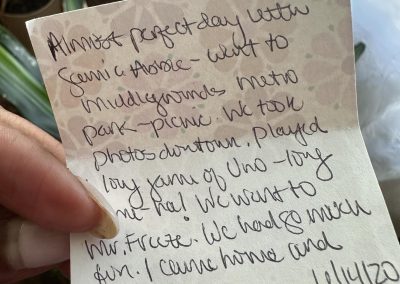 Almost perfect day with
went to
middlegrounds metro
park - picnic. We took
photos downtown. Played
long game of Uno - long
me - ha! We went to
Mr. Freeze. We had so much
fun. I came home and
6/14/20